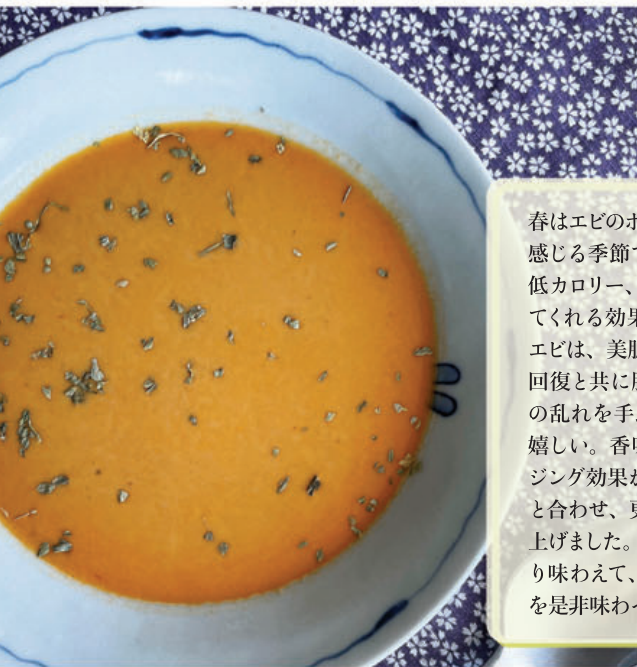 春はエビのポ
感じる季節で
低カロリー、
てくれる効果
エビは、美肌
回復と共に
の乱れを手
嬉しい。香味
ジング効果が
と合わせ、
上げました。
り味わえて、
を是非味わ